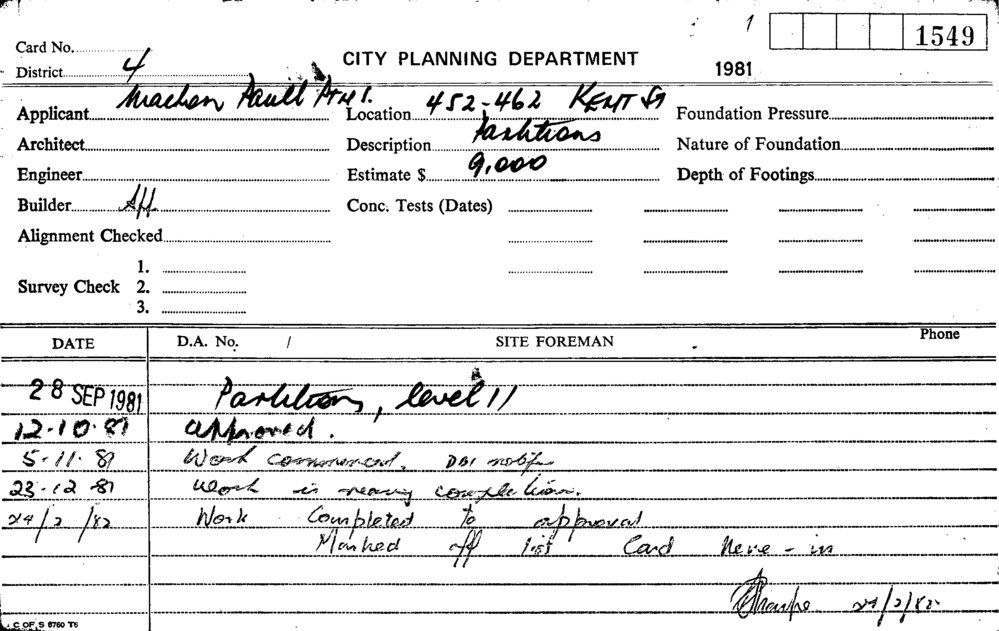 1 1549
Card No.
CITY PLANNING DEPARTMENT
District 4 1981
Applicant Paull Location 452-462 KENT ST Foundation Pressure
Architect Description Partitions Nature of Foundation
Engineer Estimate $ 9,000 Depth of Footings
Builder App. Conc. Tests (Dates)
Alignment Checked
1.
Survey Check 2.
3.
DATE D.A. No. / SITE FOREMAN Phone
28 SEP 1981 Partitions, level 11
12-10-81 approved.
5-11-81 Work commenced.
23-12-81 work is nearing completion.
24/2/82 Work Completed to approval
Marked off list Card Here-in
24/2/82
C OF S 6760 T6